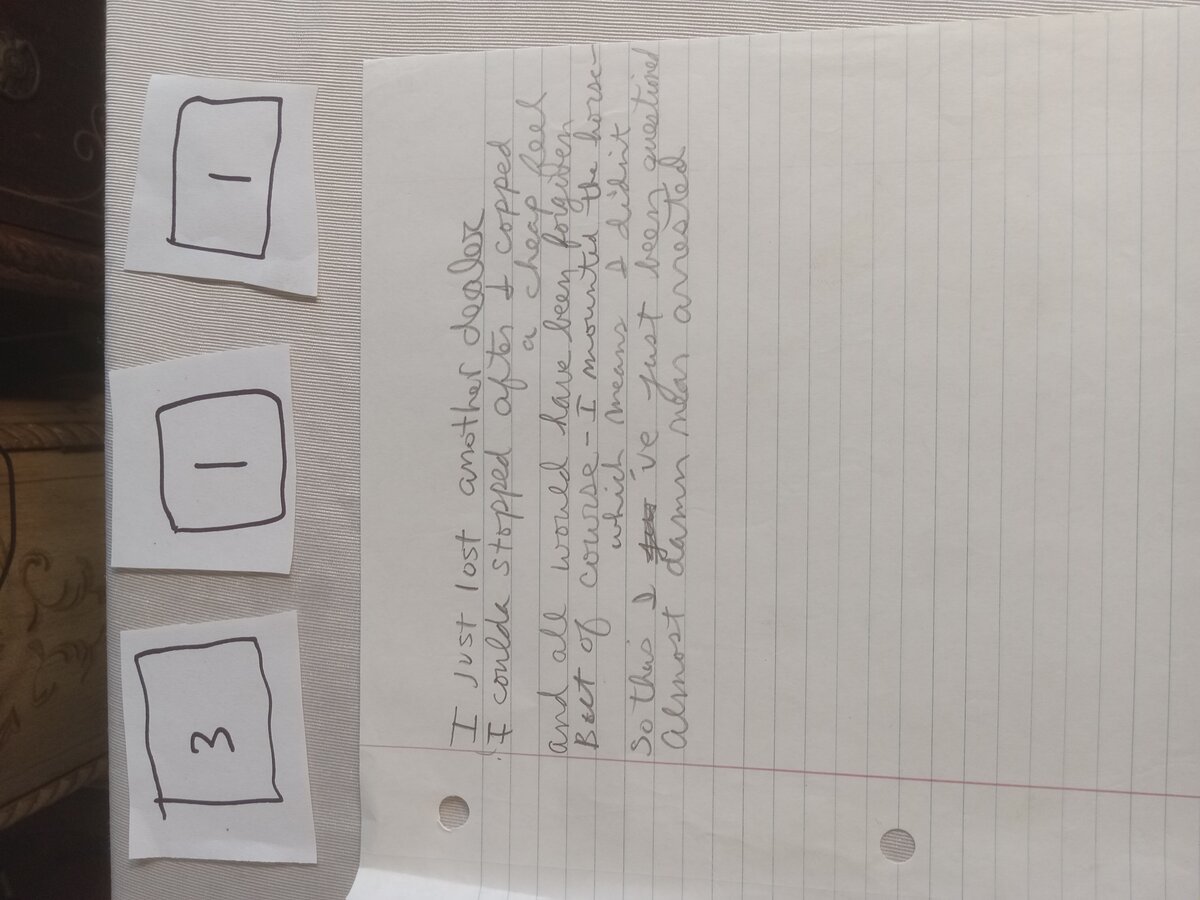 3 1 1
I just lost another dealer
I coulda stopped after I copped
a cheap feel
and all would have been forgiven
But of course - I mounted the horse -
which means I didn't
So this I 've just been questioned
Almost damn near arrested